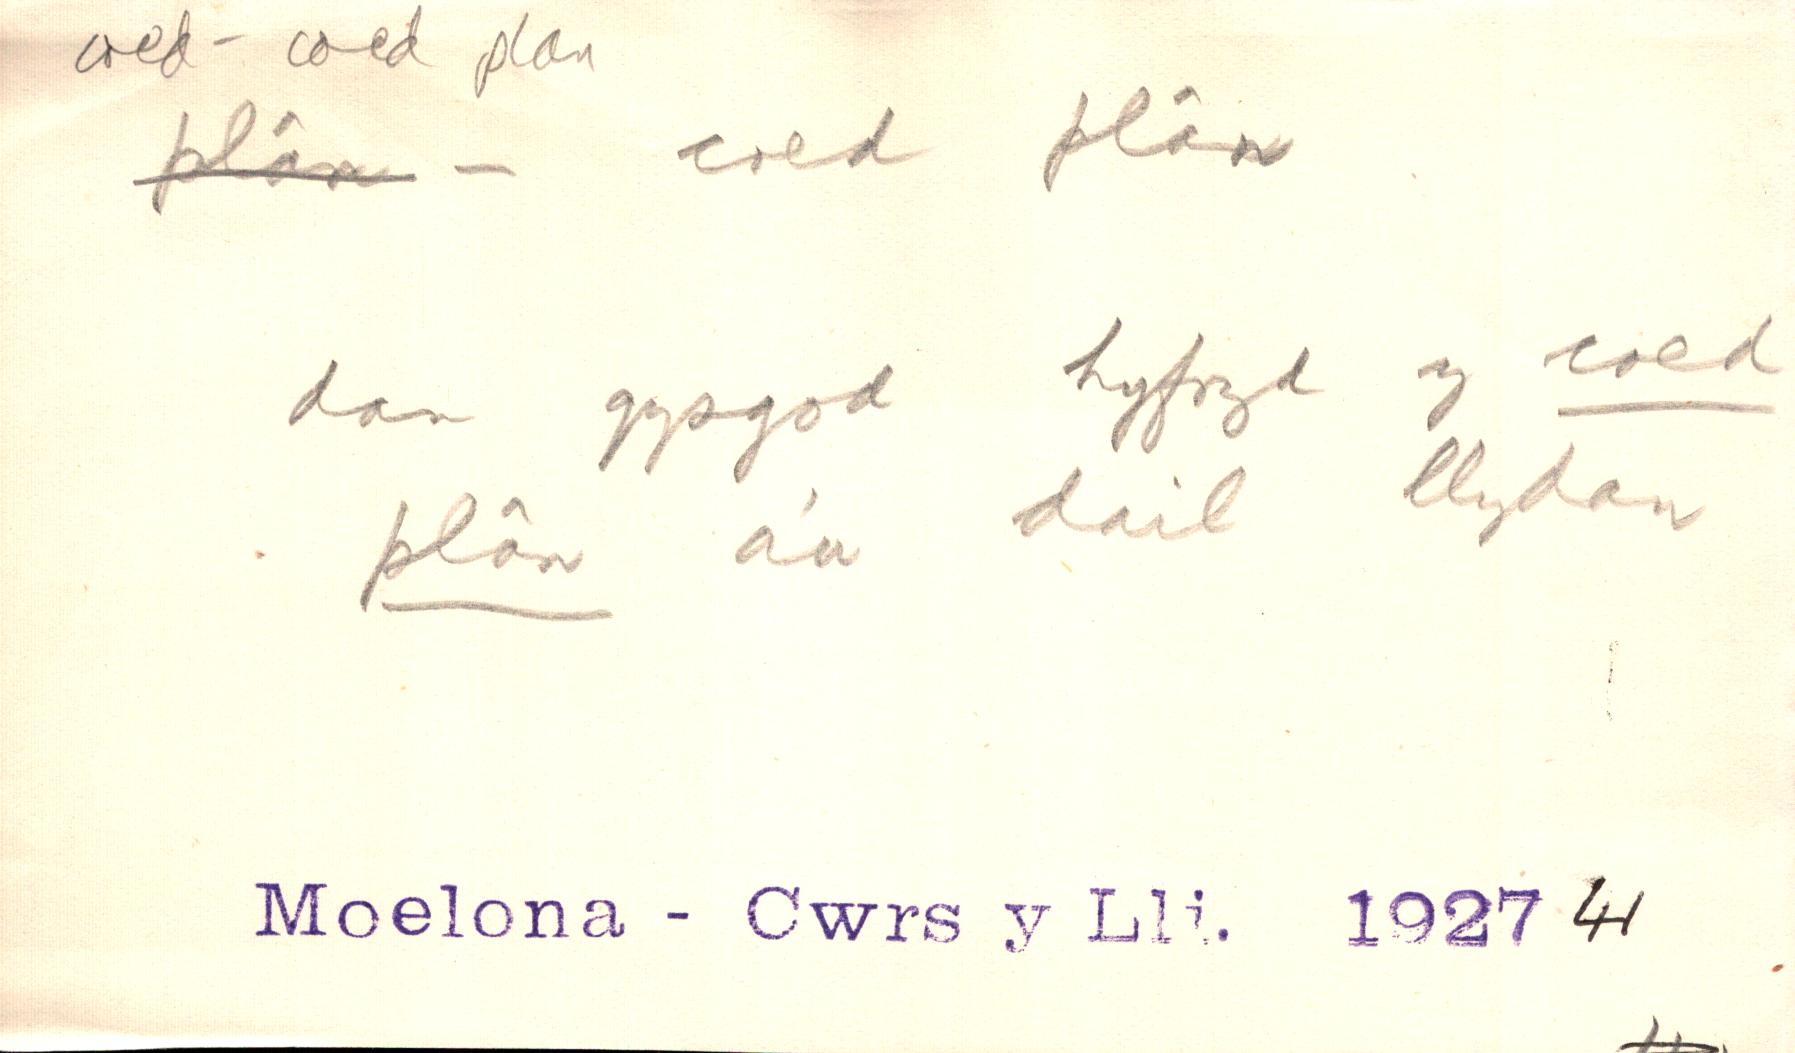 coed - coed plan
plân - coed plân
dan gysgod hyfryd y coed
plân a'u dail llydan
Moelona - Cwrs y Lli. 1927 41